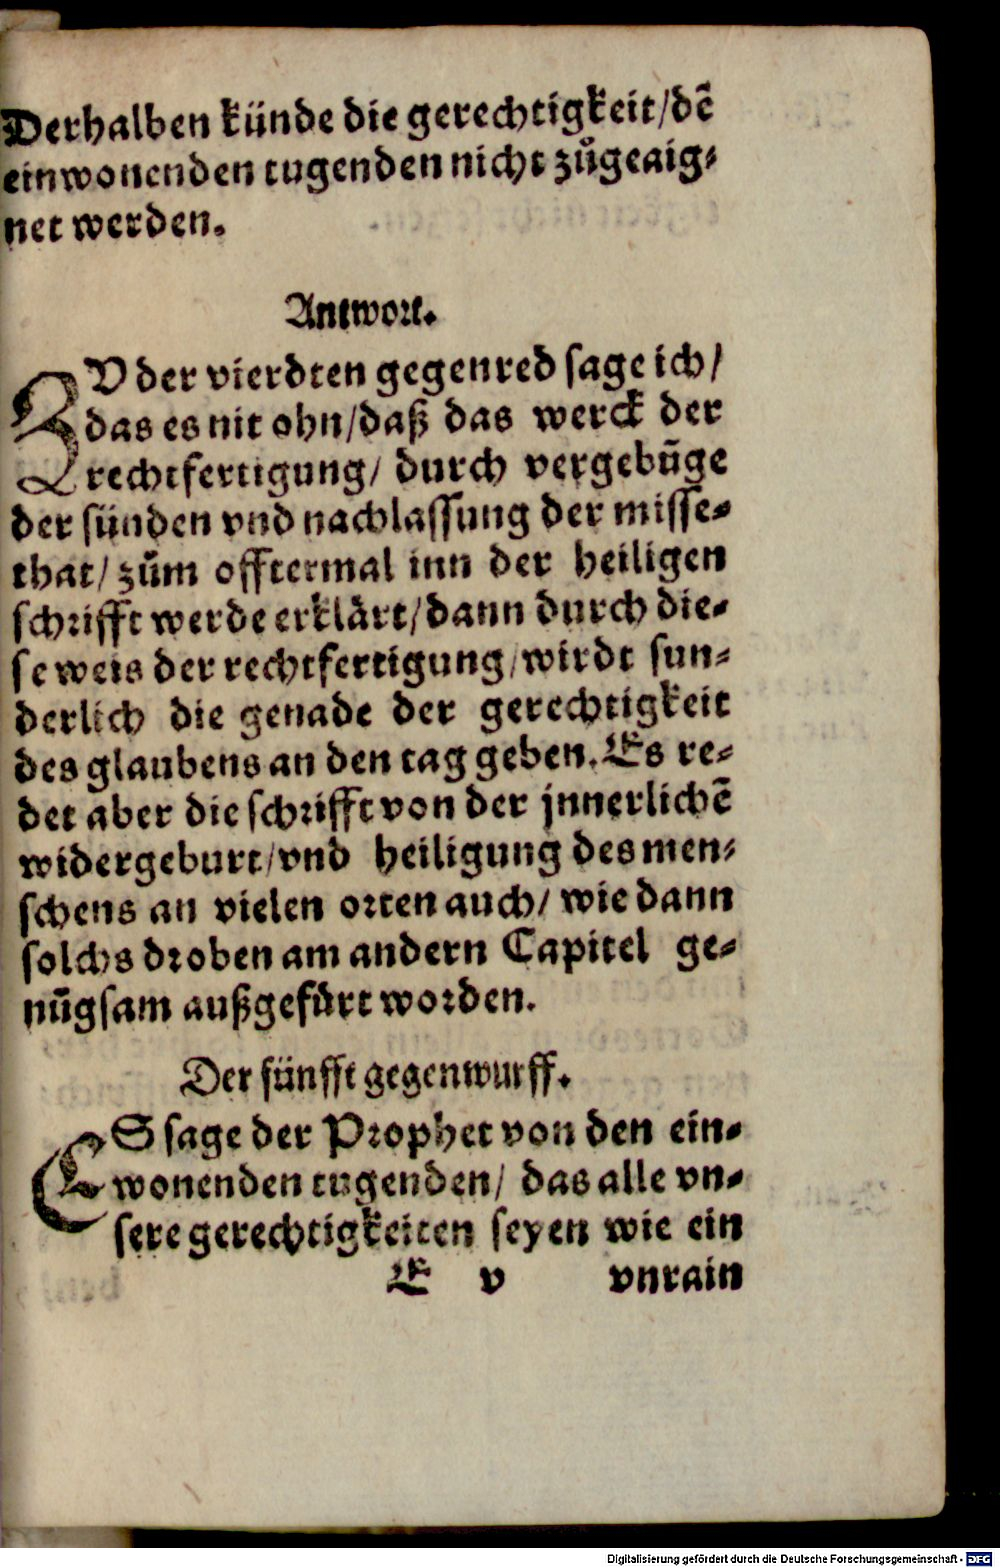 Derhalben künde die gerechtigkeit/dē
einwonenden tugenden nicht zůgeaig⸗
net werden.
Antwort.
ZV der vierdten gegenred sage ich/
das es nit ohn/daß das werck der
rechtfertigung/ durch vergebūge
der sünden vnd nachlassung der misse⸗
that/ zům offtermal inn der heiligen
schrifft werde erklärt/dann durch die⸗
se weis der rechtfertigung/wirdt sun⸗
derlich die genade der gerechtigkeit
des glaubens an den tag geben. Es re⸗
det aber die schrifft von der jnnerlichē
widergeburt/vnd heiligung des men⸗
schens an vielen orten auch/ wie dann
solchs droben am andern Capitel ge⸗
nůgsam außgefürt worden.
Der fünfft gegenwurff.
ES sage der Prophet von den ein⸗
wonenden tugenden/ das alle vn⸗
sere gerechtigkeiten seyen wie ein
E v vnrain
Digitalisierung gefördert durch die Deutsche Forschungsgemeinschaft - DFG